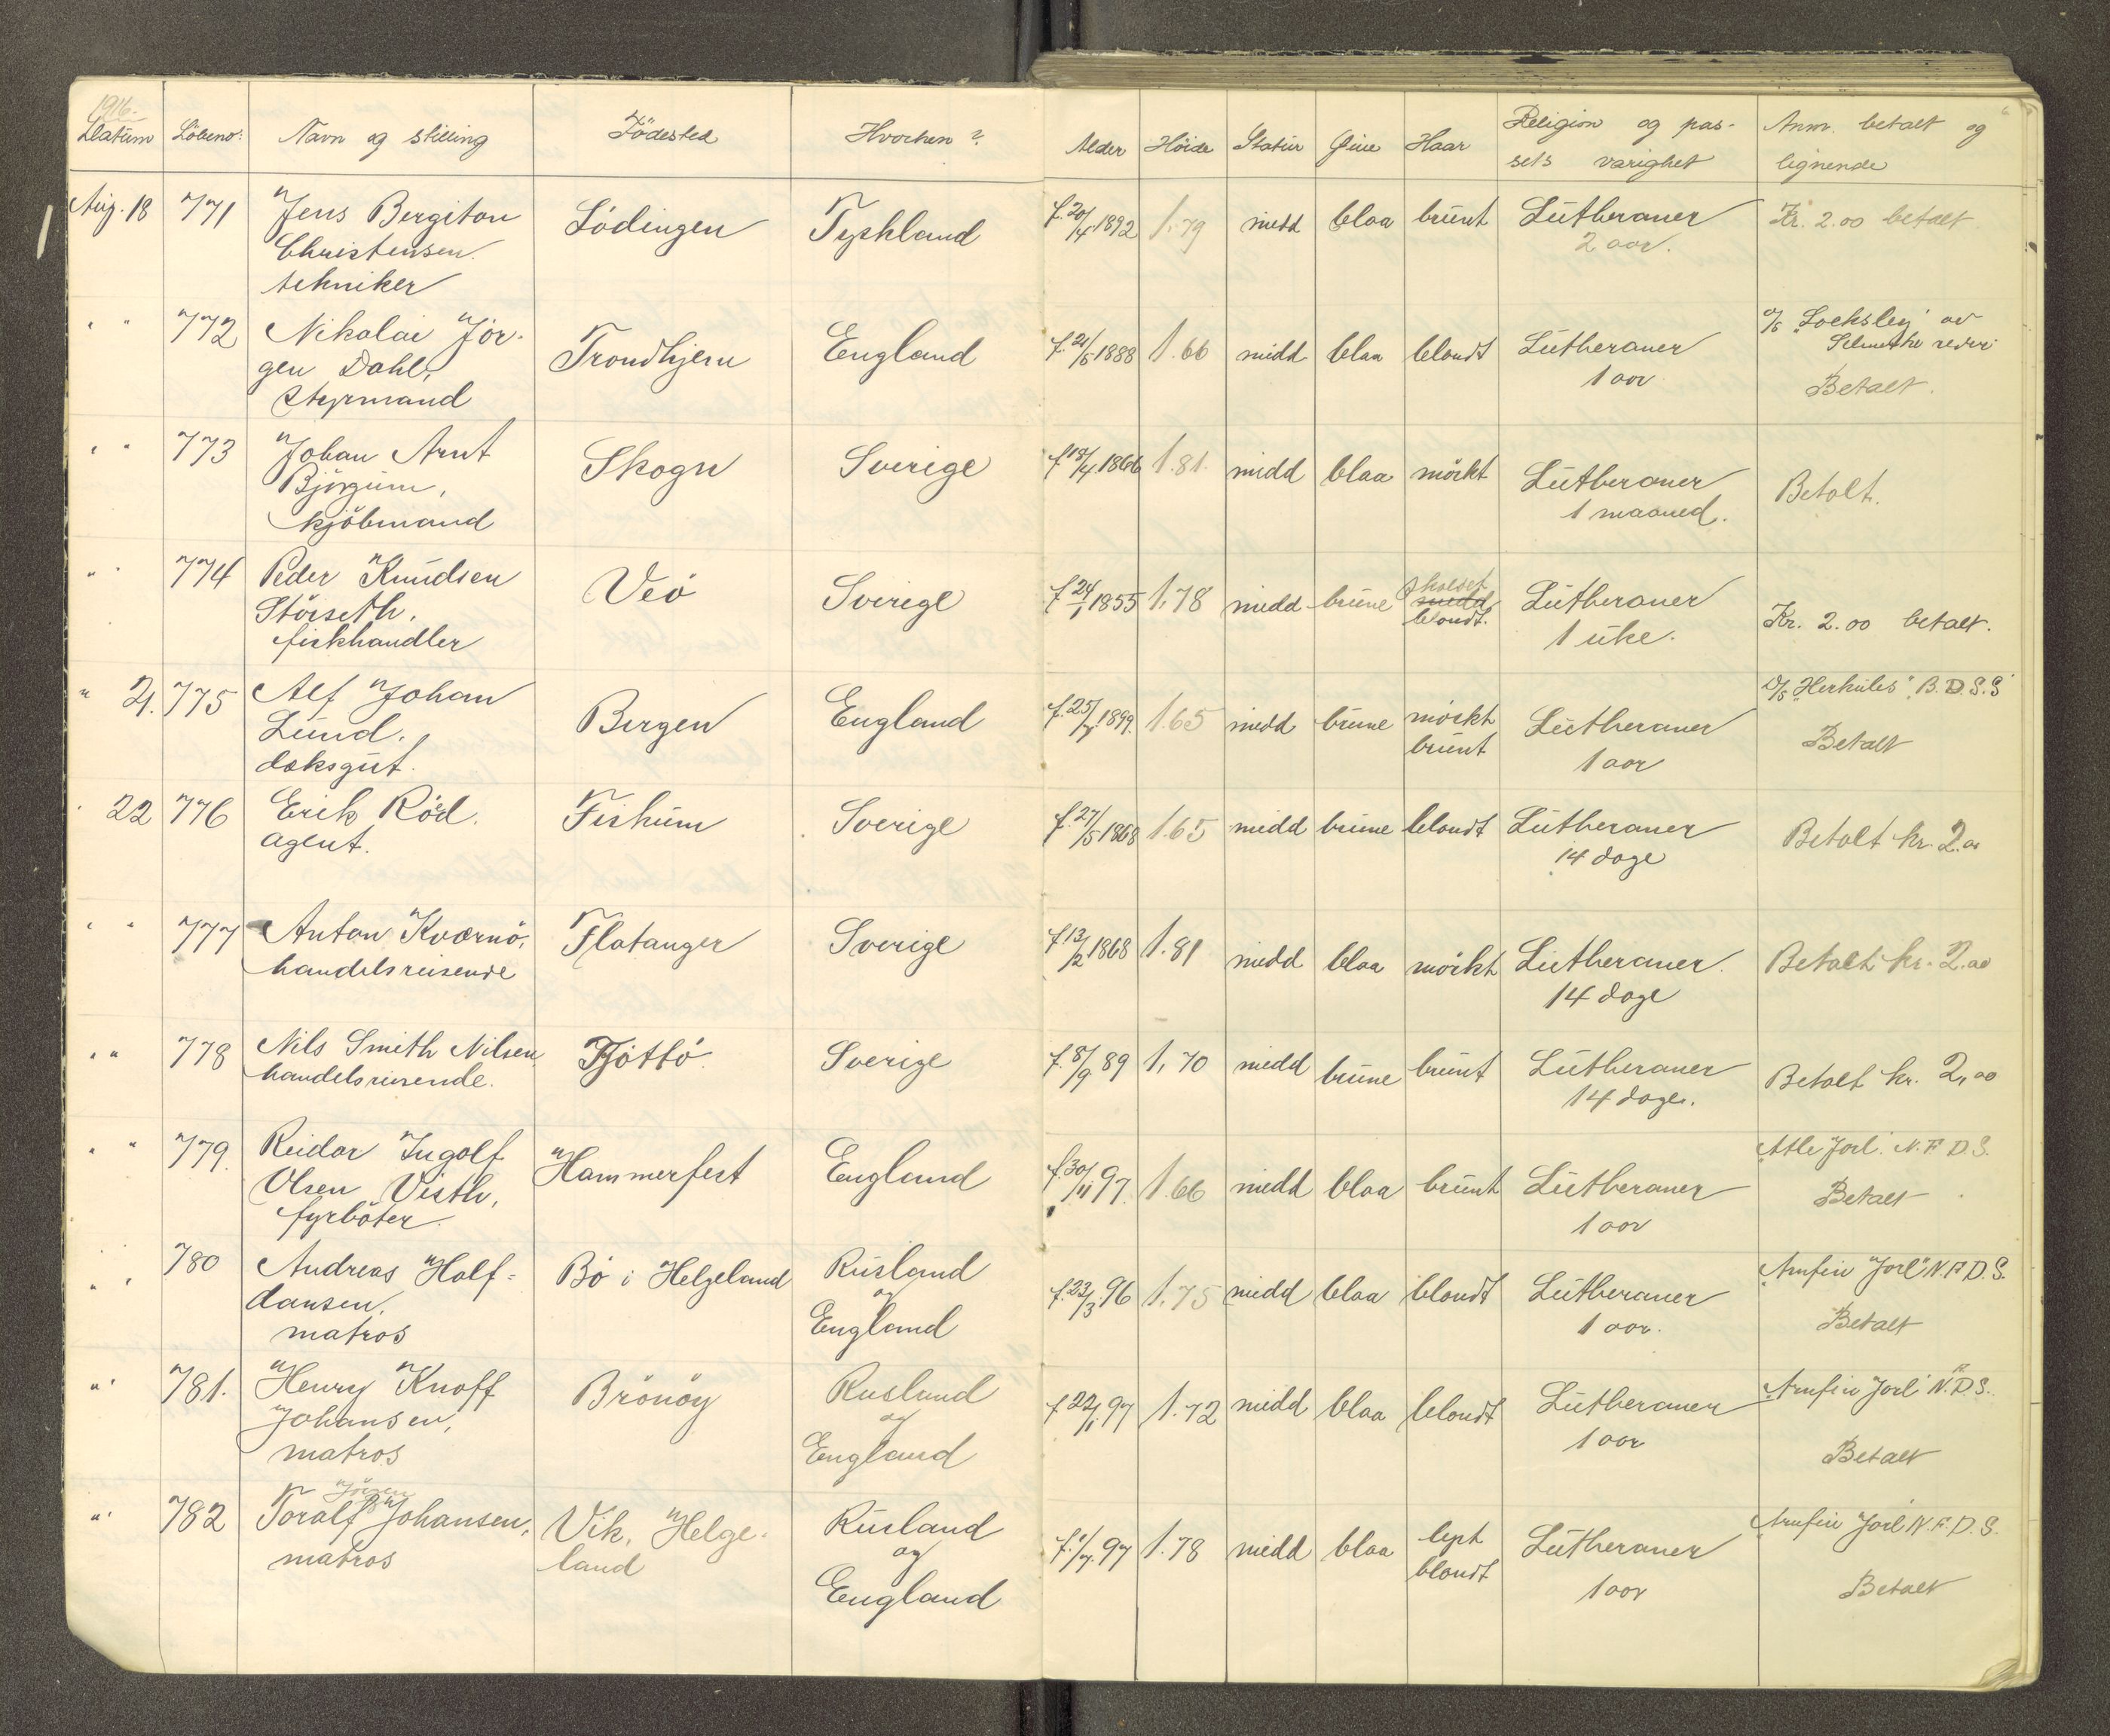 1916.
Datum Löbeno: Navn og stilling Födested Hvorhen? Alder Höide Statur Øine Haar Religion og pas- Anm. betalt og
sets varighet lignende
Aug. 18 771 Jens Bergiton Lödingen Tyskland f. 20/4 1892 1.79 midd blaa brunt Lutheraner Kr. 2.00 betalt
Christensen. 2 aar.
tekniker
" " 772 Nikolai Jör- Trondhjem England f. 21/5 1888 1.66 midd blaa blondt Lutheraner D/S "Locksley" av
gen Dahl, 1 aar
styrmand Betalt.
" " 773 Johan Arnt Skogn Sverige f. 18/4 1866 1.81. midd blaa mörkt Lutheraner Betalt.
Björgum, 1 maaned.
kjöbmand
" " 774 Peder Knudsen Veö Sverige f. 24/1 1855 1.78 midd brune skaldet Lutheraner Kr. 2.00 betalt.
Störseth. midd
fiskhandler blondt. 1 uke.
" 21. 775 Alf Johan Bergen England f. 25/7 1899. 1.65 midd brune mörkt Lutheraner D/S "Herkules" B.D.S.S
Lund. brunt 1 aar Betalt
doksgut.
" 22 776 Erik Röed. Fiskum Sverige f. 27/5 1868 1.65 midd brune blondt Lutheraner Betalt kr. 2.00
agent. 14 dage
" " 777 Anton Kværnö, Flatanger Sverige f. 13/2 1868 1.81 midd blaa mörkt Lutheraner. Betalt kr. 2.00
handelsreisende 14 dage
" " 778 Nils Smith Nilsen Tjöttö Sverige f. 8/9 89 1,70 midd brune brunt Lutheraner Betalt kr. 2,00
handelsreisende. 14 dage.
" " 779. Reidar Ingolf Hammerfest England f. 30/11 97. 1.66 midd blaa brunt Lutheraner "Atle Jarl" N.F.D.S.
Olsen Visth, 1 aar Betalt
fyrböter.
" " 780 Andreas Half- Bö i Helgeland Rusland f. 23/3 96 1.75 midd blaa blondt Lutheraner "Arnfin Jarl" N.F.D.S.
dansen, og 1 aar. Betalt
matros England
" " 781. Henry Knoff Brönöy Rusland f. 22/1 97 1.72 midd blaa blondt Lutheraner "Arnfin Jarl" N.F.D.S.
Johansen, og 1 aar
matros England Betalt
Jörgen
" " 782 Toralf Johansen, Vik, Helge- Rusland f. 1/7. 97 1.78 midd blaa lyst Lutheraner "Arnfin Jarl" N.F.D.S.
matros land og blondt 1 aar Betalt
England